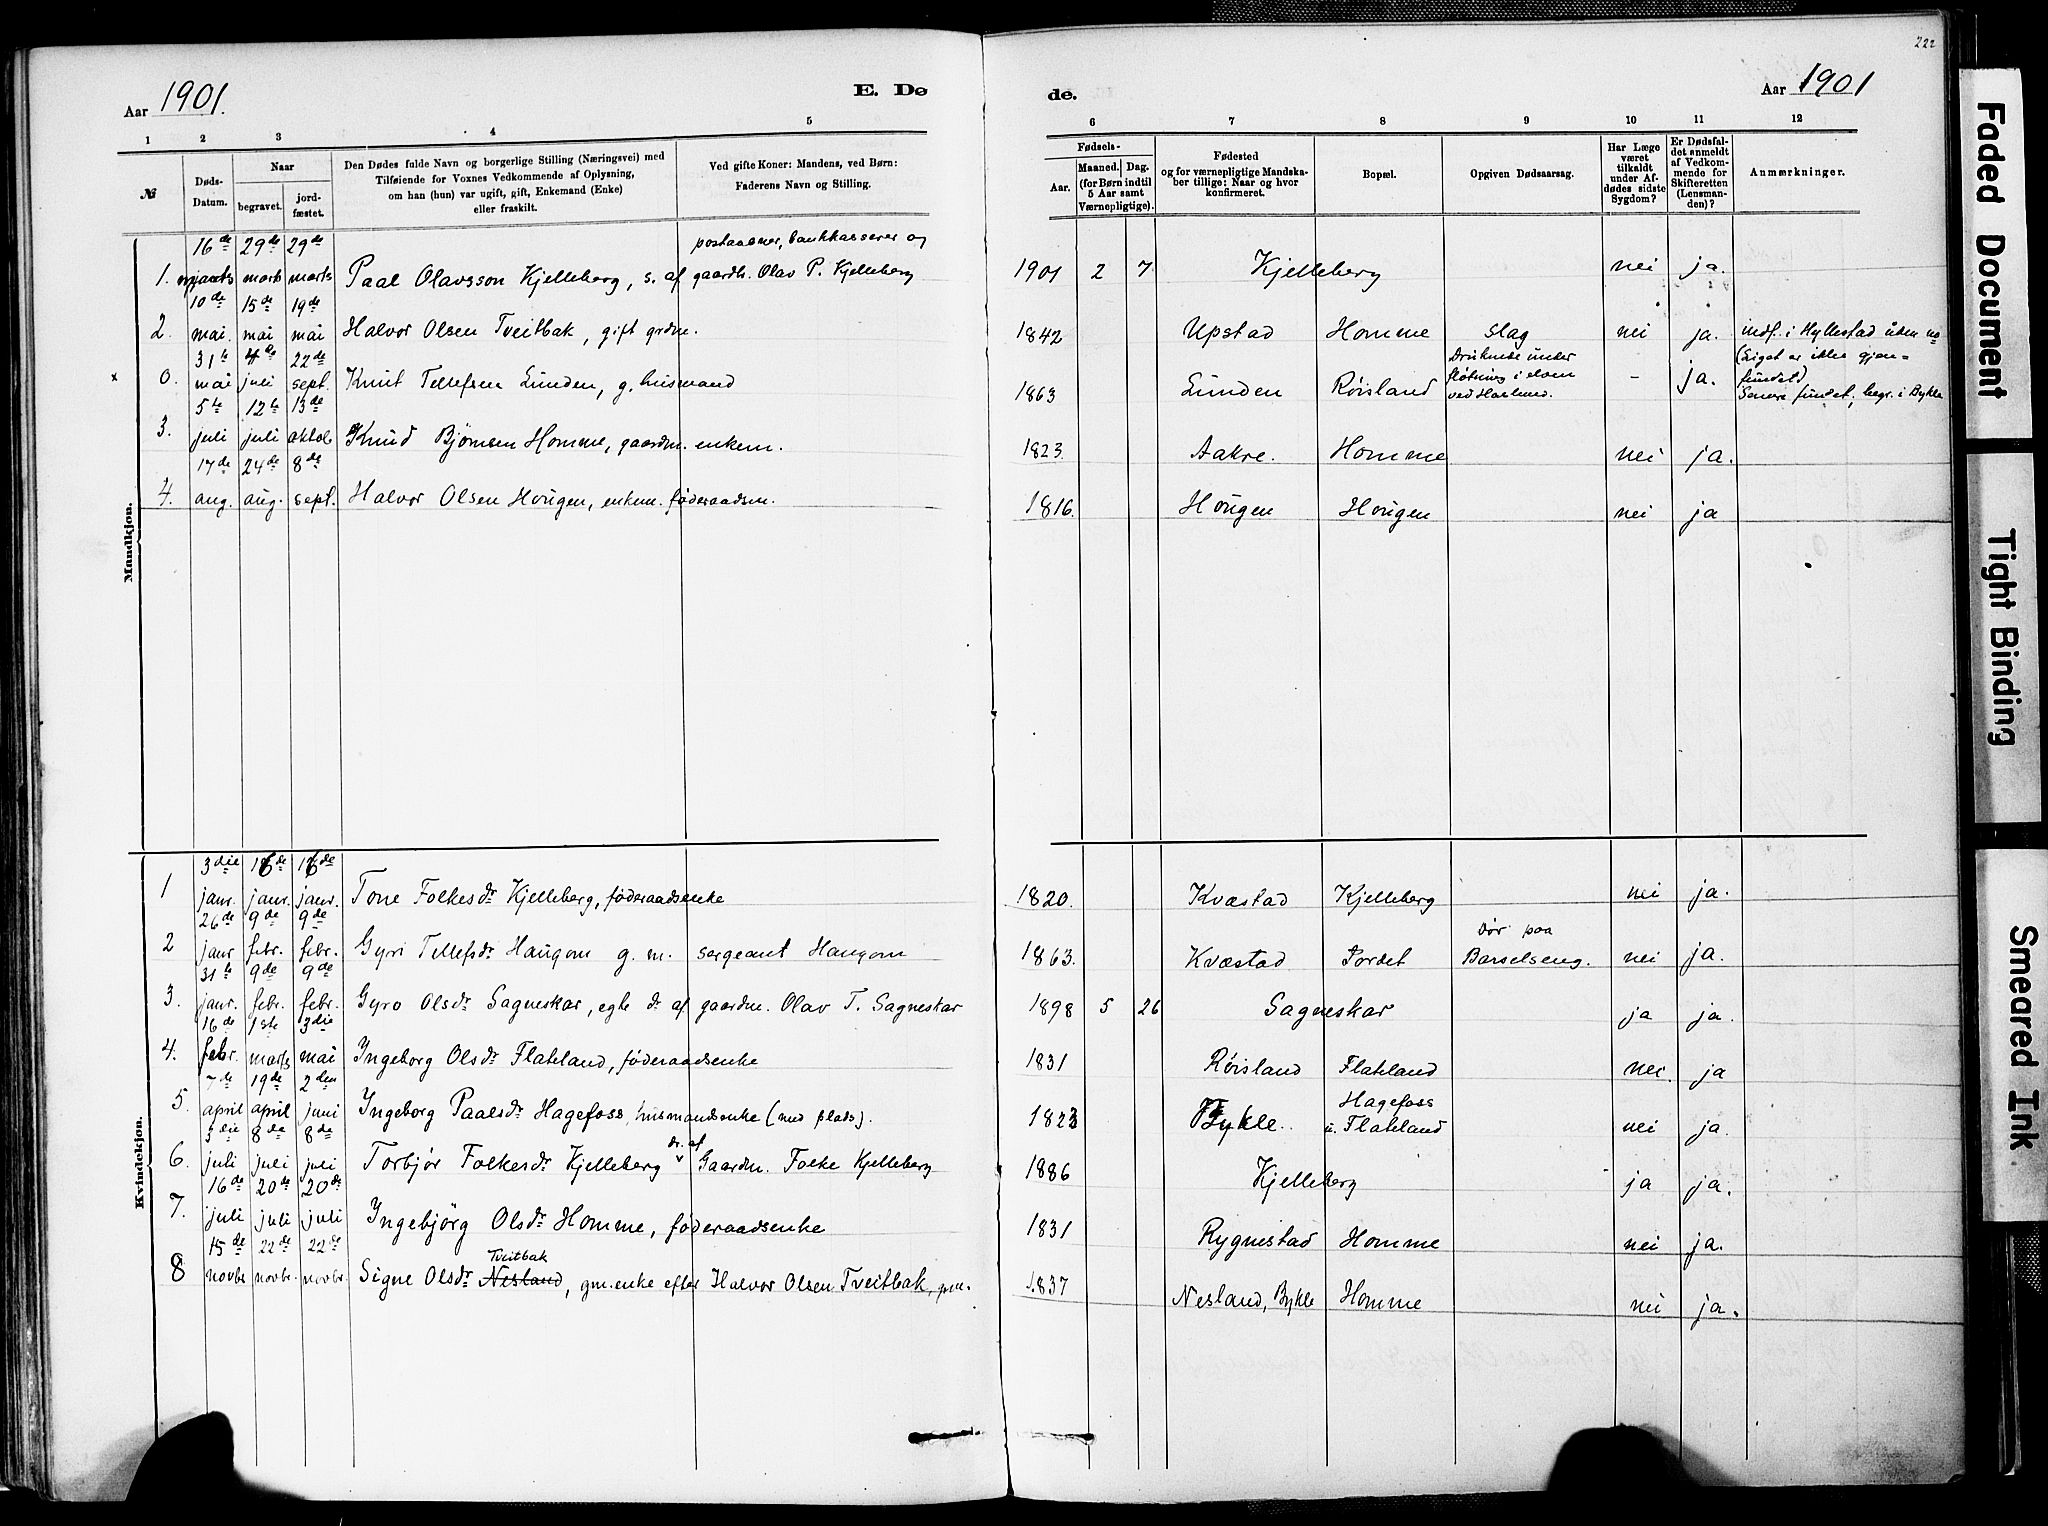 222
Aar 1901.
E. Dø
de.
Aar 1901
1 2 3 4 5
6 7 8 9 10 11 12
№
Døds-Datum.
Naar
begravet.
jord-fæstet.
Den Dødes fulde Navn og borgerlige Stilling (Næringsvei) med
Tilføiende for Voxnes Vedkommende af Oplysning,
om han (hun) var ugift, gift, Enkemand (Enke)
eller fraskilt.
Ved gifte Koner: Mandens, ved Børn:
Faderens Navn og Stilling.
Fødsels-
Aar.
Maaned. Dag.
(for Børn indtil
5 Aar samt
Værnepligtige).
Fødested
og for værnepligtige Mandska-
ber tillige: Naar og hvor
konfirmeret.
Bopæl.
Opgiven Dødsaarsag.
Har Læge
været
tilkaldt
under Af-
dødes sidste
Sygdom?
Er Dødsfal-
det anmeldt
af Vedkom-
mende for
Skifteretten
(Lensman-
den)?
Anmærkninger.
Mandkjøn.
16de 29de 29de postaabner, bankkasserer og
1. marts marts marts Paal Olavsson Kjelleberg, s. af gaardbr. Olav P. Kjelleberg 1901 2 7 Kjelleberg nei ja.
10de 15de 19de
2. mai mai mai Halvor Olsen Tveitbak, gift grdm. 1842 Upstad Homme slag nei ja. indf. i Hyllestad uden no
31te 4de 22de Druknede under (Liget er ikke gjen-
x 0. mai juli sept. Knut Tellefsen Lunden, g. husmand 1863 Lunden Røisland fløtning i elven - ja. fundet)
ved Senere fundet, begr. i Bykle
5te 12te 13de
3. juli juli oktob Knud Bjørnsen Homme, gaardm. enkem. 1823 Aakre. Homme nei ja.
17de 24de 8de
4. aug. aug. sept. Halvor Olsen Hougen, enkem. føderaadsm. 1816. Hougen Hougen nei ja
Kvindekjøn.
3die 16de 16de
1 janr. janr. janr. Tone Folkesdr Kjelleberg, føderaadsenke 1820. Kvæstad Kjelleberg nei ja.
26de 9de 9de Dør paa
2 janr febr. febr. Gyri Tellefsdr Haugom g. m. sergeant Haugom 1863. Kvæstad Jordet Barselseng. nei ja.
31te 9de 9de
3. janr. febr. febr. Gyro Olsdr Sagneskar, egte dr af gaardm. Olav T. Sagneskar 1898 5 26 Sagneskar ja ja.
16de 1ste 3die
4. febr. marts mai Ingeborg Olsdr Flateland, føderaadsenke 1831 Røisland Flateland nei. ja
7de 19de 2den Hagefoss
5. april april juni Ingeborg Paalsdr Hagefoss, husmandsenke (med plads). 1823 Bykle. u. Flateland nei ja.
3die 8de 8de dr. af
6. juli juli juli Torbjør Folkesdr Kjelleberg Gaardm. Folke Kjelleberg 1886 Kjelleberg ja ja.
16de 20de 20de
7. juli juli juli Ingebjörg Olsdr Homme, føderaadsenke 1831 Rygnestad Homme nei ja.
15de 22de 22de Tveitbak
8 novbr novbr. novbr. Signe Olsdr Nesland, gm. enke efter Halvor Olsen Tveitbak, gm. 1837 Nesland, Bykle Homme nei ja.
Faded Document
Tight Binding
Smeared Ink